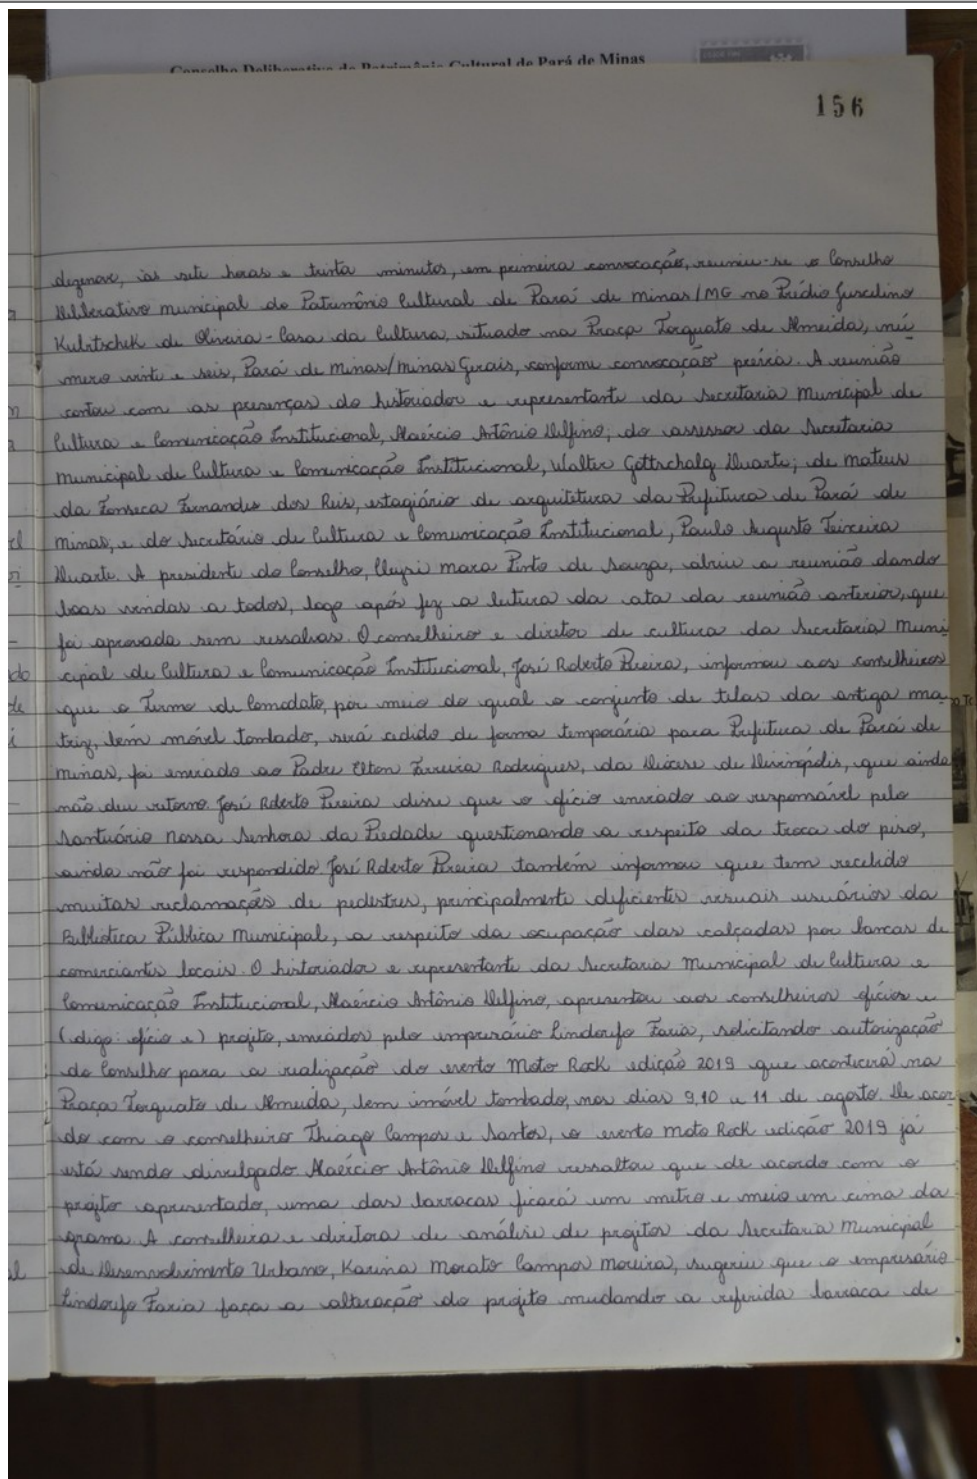 Conselho Deliberativo do Patrimônio Cultural de Pará de Minas
156
dezenove, às sete horas e trinta minutos, em primeira convocação, reuniu-se o Conselho
Deliberativo municipal do Patrimônio Cultural de Pará de Minas/MG no Prédio Juscelino
Kubitschek de Oliveira - Casa da Cultura, situado na Praça Torquato de Almeida, nú
mero vinte e seis, Pará de Minas/Minas Gerais, conforme convocação prévia. A reunião
contou com as presenças do historiador e representante da Secretaria Municipal de
Cultura e Comunicação Institucional, Alaércio Antônio Delfino; do assessor da Secretaria
Municipal de Cultura e Comunicação Institucional, Walter Gottschalg Duarte; de Mateus
da Fonseca Fernandes dos Reis, estagiário de arquitetura da Prefeitura de Pará de
Minas, e do Secretário de Cultura e Comunicação Institucional, Paulo Augusto Teixeira
Duarte. A presidente do Conselho, Cleysi Mara Pinto de Souza, abriu a reunião dando
boas vindas a todos, logo após fez a leitura da ata da reunião anterior, que
foi aprovada sem ressalvas. O conselheiro e diretor de cultura da Secretaria Muni
cipal de Cultura e Comunicação Institucional, José Roberto Pereira, informou aos conselheiros
que o Termo de Comodato, por meio do qual o conjunto de telas da antiga ma
triz, bem móvel tombado, será cedido de forma temporária para Prefeitura de Pará de
Minas, foi enviado ao Padre Elton Ferreira Rodrigues, da Diocese de Divinópolis, que ainda
não deu retorno. José Roberto Pereira disse que o ofício enviado ao responsável pelo
Santuário Nossa Senhora da Piedade questionando a respeito da troca do piso,
ainda não foi respondido. José Roberto Pereira também informou que tem recebido
muitas reclamações de pedestres, principalmente deficientes visuais usuários da
Biblioteca Pública Municipal, a respeito da ocupação das calçadas por bancas de
comerciantes locais. O historiador e representante da Secretaria Municipal de Cultura e
Comunicação Institucional, Alaércio Antônio Delfino, apresentou aos conselheiros ofícios e
(digo: ofício e) projeto, enviados pelo empresário Lindorifo Faria, solicitando autorização
do Conselho para a realização do evento Moto Rock edição 2019 que acontecerá na
Praça Torquato de Almeida, bem imóvel tombado, nos dias 9, 10 e 11 de agosto. De acor
do com o conselheiro Thiago Campos e Santos, o evento Moto Rock edição 2019 já
está sendo divulgado. Alaércio Antônio Delfino ressaltou que de acordo com o
projeto apresentado, uma das barracas ficará um metro e meio em cima da
grama. A conselheira e diretora de análise de projetos da Secretaria Municipal
de Desenvolvimento Urbano, Karina Morato Campos Moreira, sugeriu que o empresário
Lindorifo Faria faça a alteração do projeto mudando a referida barraca de